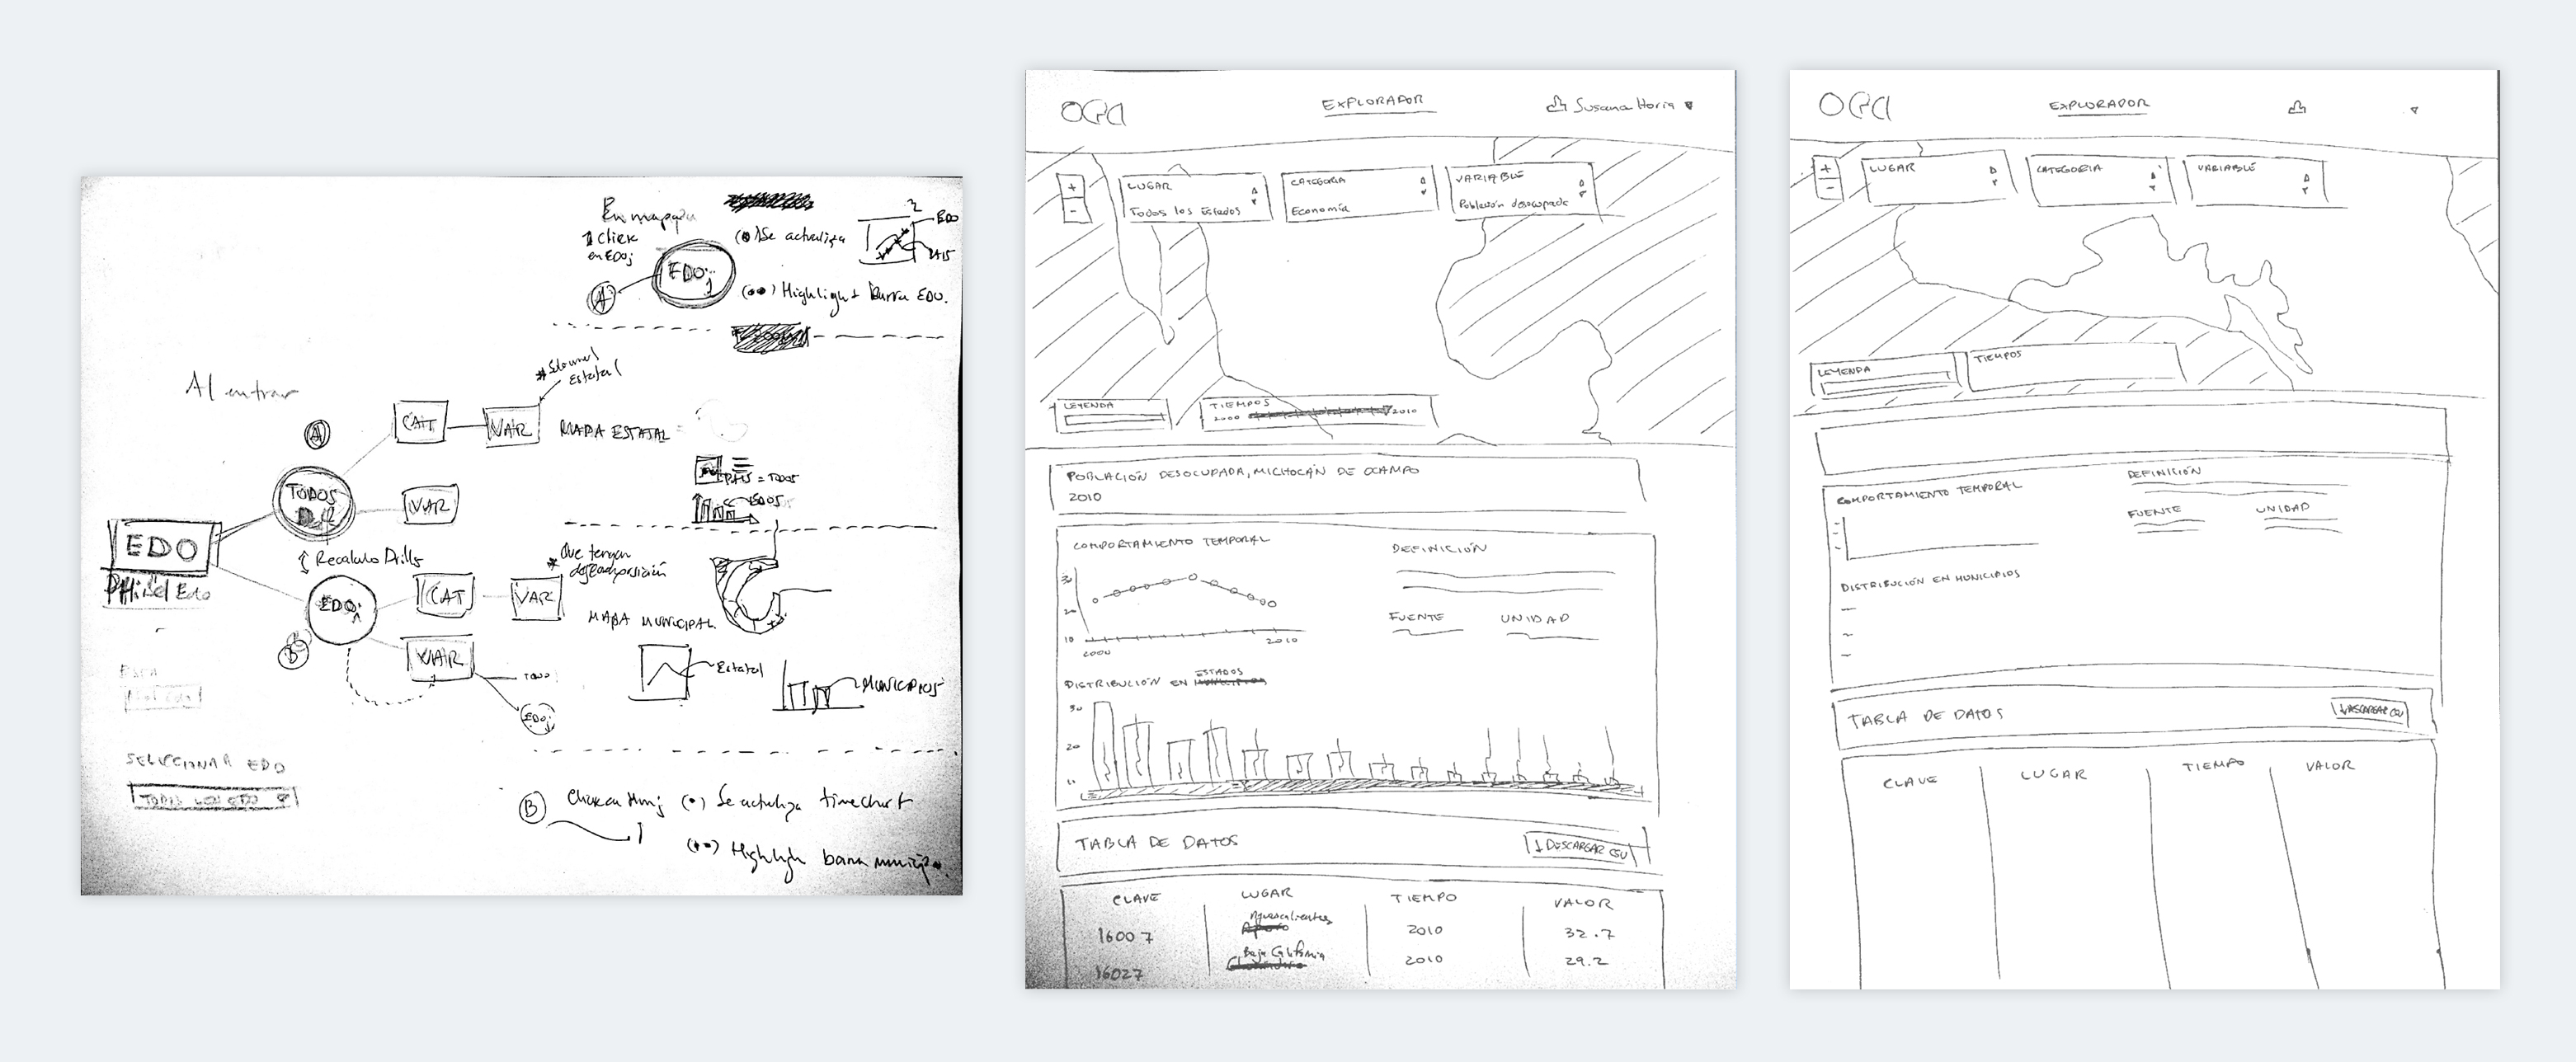 En mapa
1 Click
en EDOj
(•) Se actualiza
EDO
PAIS
EDOj
A
(••) Highlight barra EDO.
Al entrar
A
CAT
VAR
MAPA ESTATAL
Estatal
TODOS
VAR
PAIS = TODOS
EDOS
EDO
Recalculo Drills
* Que tengan
EDO
CAT
VAR
MAPA MUNICIPAL
B
VAR
TODO
EDOj
Estatal
MUNICIPIOS
SELECCIONAR EDO
TODOS LOS EDO
B
Click en Munj
(•) Se actualiza timechart
(••) Highligh barra municipio.
OCA
EXPLORADOR
Susana Horia
+
-
LUGAR
Todos los Estados
CATEGORIA
Economía
VARIABLE
Población desocupada
LEYENDA
TIEMPOS
2000
2010
POBLACIÓN DESOCUPADA, MICHOCÁN DE OCAMPO
2010
COMPORTAMIENTO TEMPORAL
30
20
10
2000
2010
DEFINICIÓN
FUENTE
UNIDAD
DISTRIBUCIÓN EN ESTADOS
30
20
10
TABLA DE DATOS
DESCARGAR CSV
CLAVE
LUGAR
TIEMPO
VALOR
16007
Aguascalientes
2010
32.7
16027
Baja California
2010
29.2
OCA
EXPLORADOR
+
-
LUGAR
CATEGORIA
VARIABLE
LEYENDA
TIEMPOS
COMPORTAMIENTO TEMPORAL
DEFINICIÓN
FUENTE
UNIDAD
DISTRIBUCIÓN EN MUNICIPIOS
TABLA DE DATOS
DESCARGAR CSV
CLAVE
LUGAR
TIEMPO
VALOR